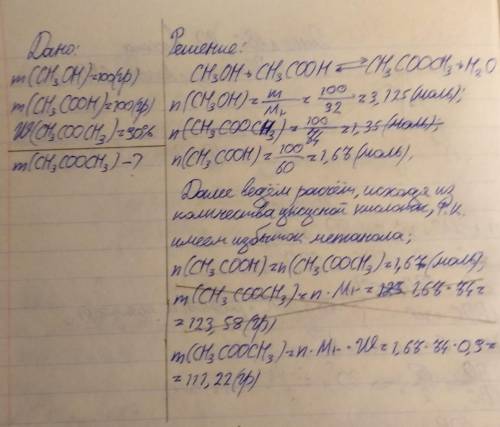 Дано:
m(CH₃OH)=100(гр)
m(CH₃COOH)=100(гр)
W(CH₃COOCH₃)=90%
m(CH₃COOCH₃)-?
Решение:
CH₃OH+CH₃COOH⇄CH₃COOCH₃+H₂O
n(CH₃OH)=m/Mr=100/32=3,125(моль);
n(CH₃COOCH₃)=100/74=1,35(моль);
n(CH₃COOH)=100/60=1,67(моль).
Далее ведём расчёт, исходя из
количества уксусной кислоты, т.к.
имеем избыток метанола;
n(CH₃COOH)=n(CH₃COOCH₃)=1,67(моль)
m(CH₃COOCH₃)=n·Mr=123 1,67·74=
=123,58(гр)
m(CH₃COOCH₃)=n·Mr·W=1,67·74·0,9=
=111,22(гр)